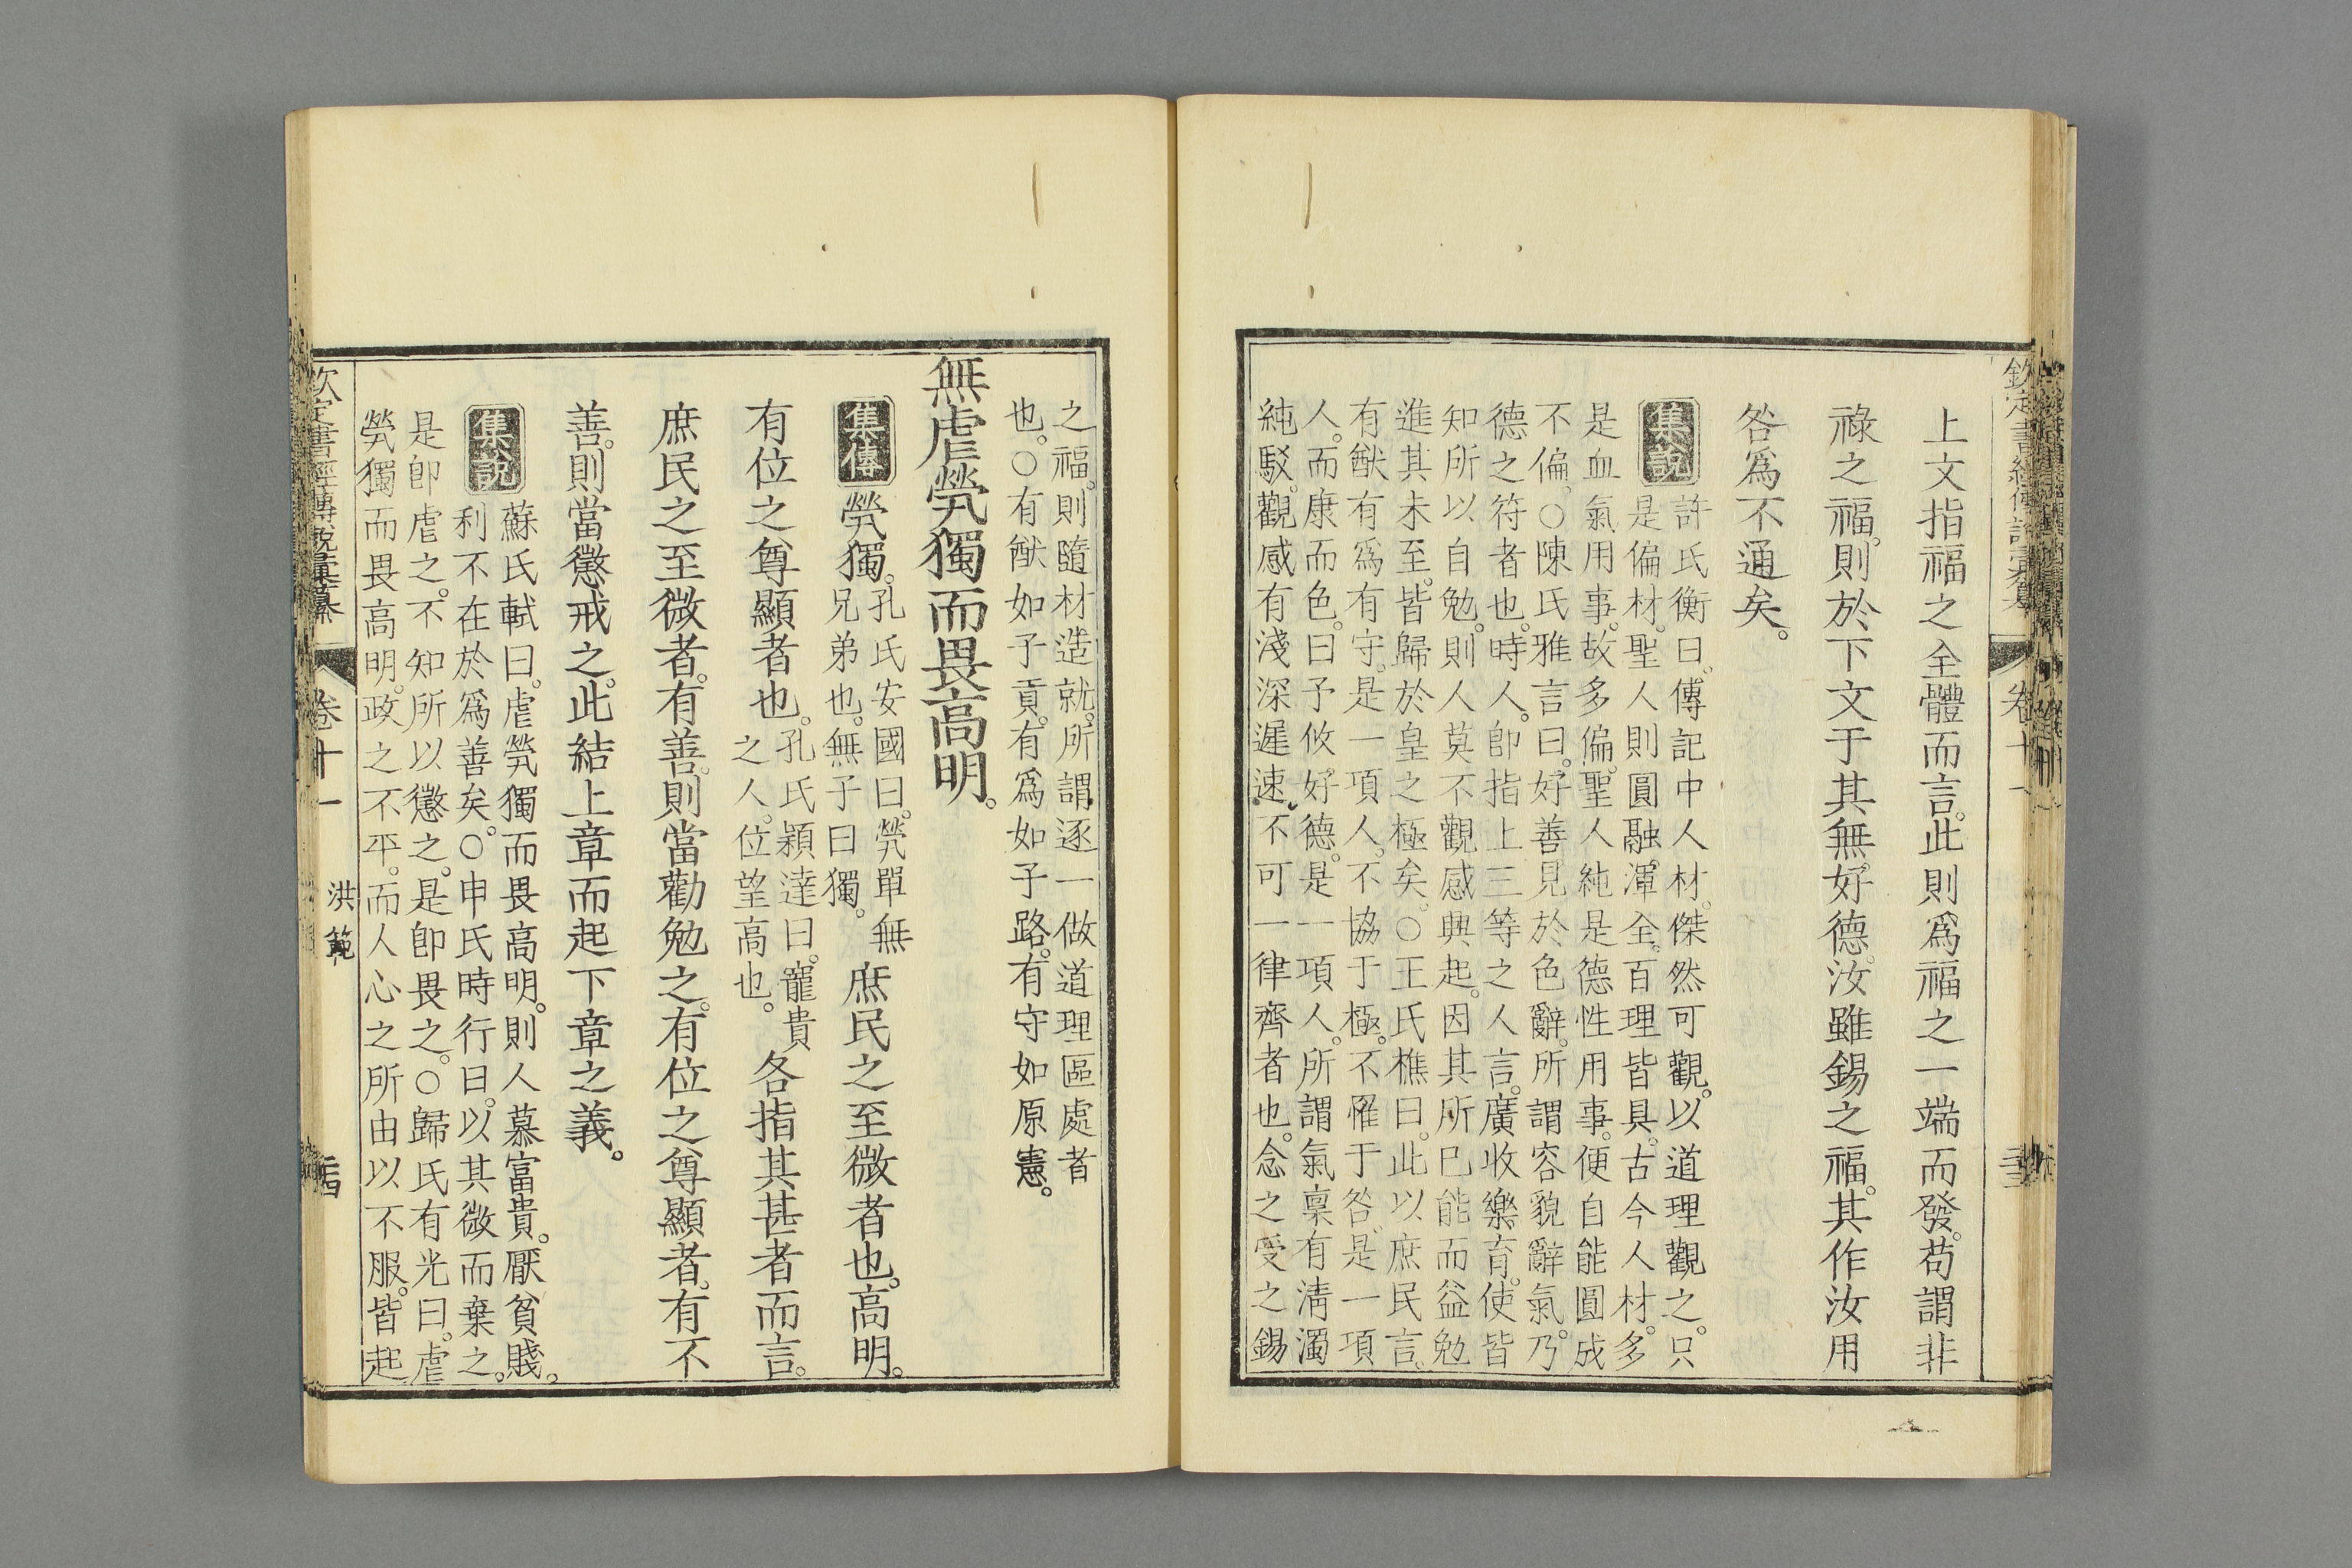 上文指福之全體而言。此則爲福之一端而發。苟謂非
祿之福。則於下文于其無好德。汝雖錫之福。其作汝用
咎爲不通矣。
集說
許氏衡曰。傳記中人材。傑然可觀。以道理觀之。只
是偏材。聖人則圓融。渾全。百理皆具。古今人材。多
是血氣用事。故多偏。聖人純是德性用事。便自能圓成
不偏。○陳氏雅言曰。好善見於色辭。所謂容貌辭氣。乃
德之符者也。時人。卽指上三等之人言。廣收樂育。使皆
知所以自勉。則人莫不觀感興起。因其所已能而益勉
進其未至。皆歸於皇之極矣。○王氏樵曰。此以庶民言。
有猷有爲有守。是一項人。不協于極。不罹于咎。是一項
人。而康而色。曰予攸好德。是一項人。所謂氣稟有淸濁
純駁。觀感有淺深遲速。不可一律齊者也。念之受之錫
之福。則隨材造就。所謂逐一做道理區處者
也。○有猷如子貢。有爲如子路。有守如原憲。
無虐煢獨而畏高明。
集傳
煢獨。孔氏安國曰。煢單無
兄弟也。無子曰獨。
庶民之至微者也。高明。
有位之尊顯者也。孔氏穎達曰。寵貴
之人。位望高也。
各指其甚者而言。
庶民之至微者。有善。則當勸勉之。有位之尊顯者。有不
善。則當懲戒之。此結上章而起下章之義。
集說
蘇氏軾曰。虐煢獨而畏高明。則人慕富貴。厭貧賤。
利不在於爲善矣。○申氏時行曰。以其微而棄之。
是卽虐之。不知所以懲之。是卽畏之。○歸氏有光曰。虐
煢獨而畏高明。政之不平。而人心之所由以不服。皆起
欽定書經傳說彙纂
卷十一
洪範